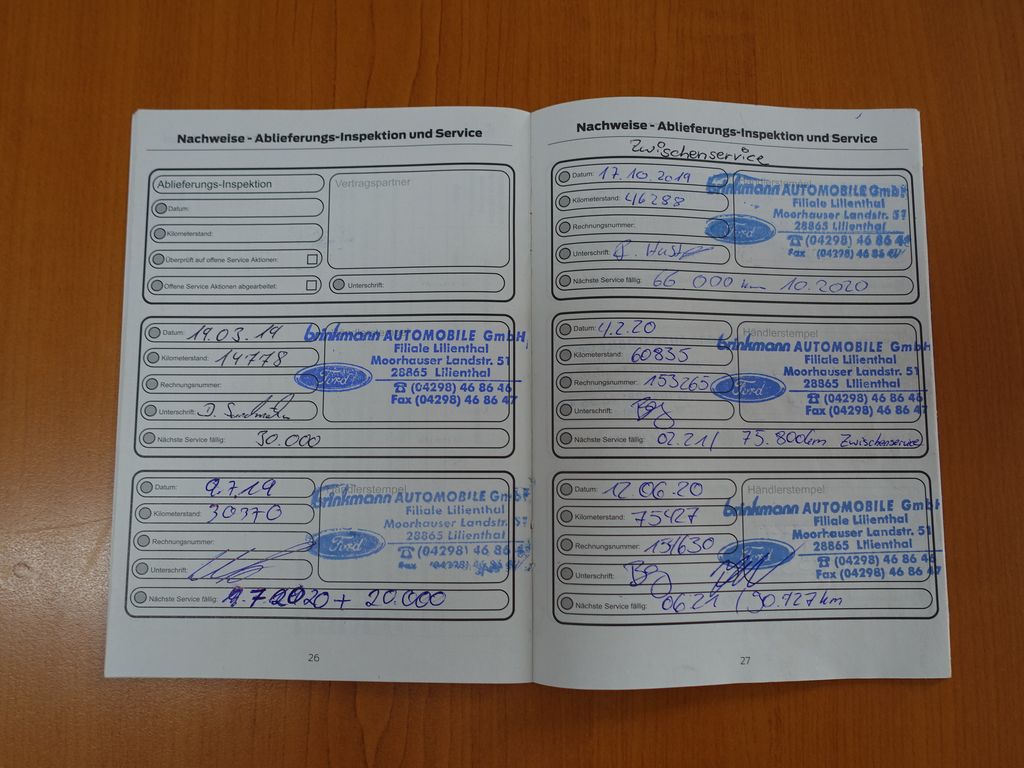 Nachweise - Ablieferungs-Inspektion und Service
Ablieferungs-Inspektion
Vertragspartner
Datum:
Kilometerstand:
Überprüft auf offene Service Aktionen:
Offene Service Aktionen abgearbeitet:
Unterschrift:
Datum: 19.03.19
Kilometerstand: 14778
Rechnungsnummer:
Unterschrift:
Nächste Service fällig: 30.000
Händlerstempel
brinkmann AUTOMOBILE GmbH
Filiale Lilienthal
Moorhauser Landstr. 51
28865 Lilienthal
Ford
☎ (04298) 46 86 46
Fax (04298) 46 86 47
Datum: 9.7.19
Kilometerstand: 30370
Rechnungsnummer:
Unterschrift:
Nächste Service fällig: 9.7.2020 + 20.000
Händlerstempel
brinkmann AUTOMOBILE GmbH
Filiale Lilienthal
Moorhauser Landstr. 51
28865 Lilienthal
Ford
☎ (04298) 46 86
26
Nachweise - Ablieferungs-Inspektion und Service
Zwischenservice
Datum: 17.10.2019
Kilometerstand: 46288
Rechnungsnummer:
Unterschrift:
Nächste Service fällig: 66 000 km 10.2020
Händlerstempel
brinkmann AUTOMOBILE GmbH
Filiale Lilienthal
Moorhauser Landstr. 51
28865 Lilienthal
Ford
☎ (04298) 46 86 4
Fax (04298) 46 86
Datum: 4.2.20
Kilometerstand: 60835
Rechnungsnummer: 153265
Unterschrift:
Nächste Service fällig: 02.21 / 75.800km Zwischenservice
Händlerstempel
brinkmann AUTOMOBILE GmbH
Filiale Lilienthal
Moorhauser Landstr. 51
28865 Lilienthal
Ford
☎ (04298) 46 86 46
Fax (04298) 46 86 47
Datum: 12.06.20
Kilometerstand: 75427
Rechnungsnummer: 131630
Unterschrift:
Nächste Service fällig: 06.21 / 90.727km
Händlerstempel
brinkmann AUTOMOBILE GmbH
Filiale Lilienthal
Moorhauser Landstr. 51
28865 Lilienthal
☎ (04298) 46 86 46
Fax (04298) 46 86 47
27